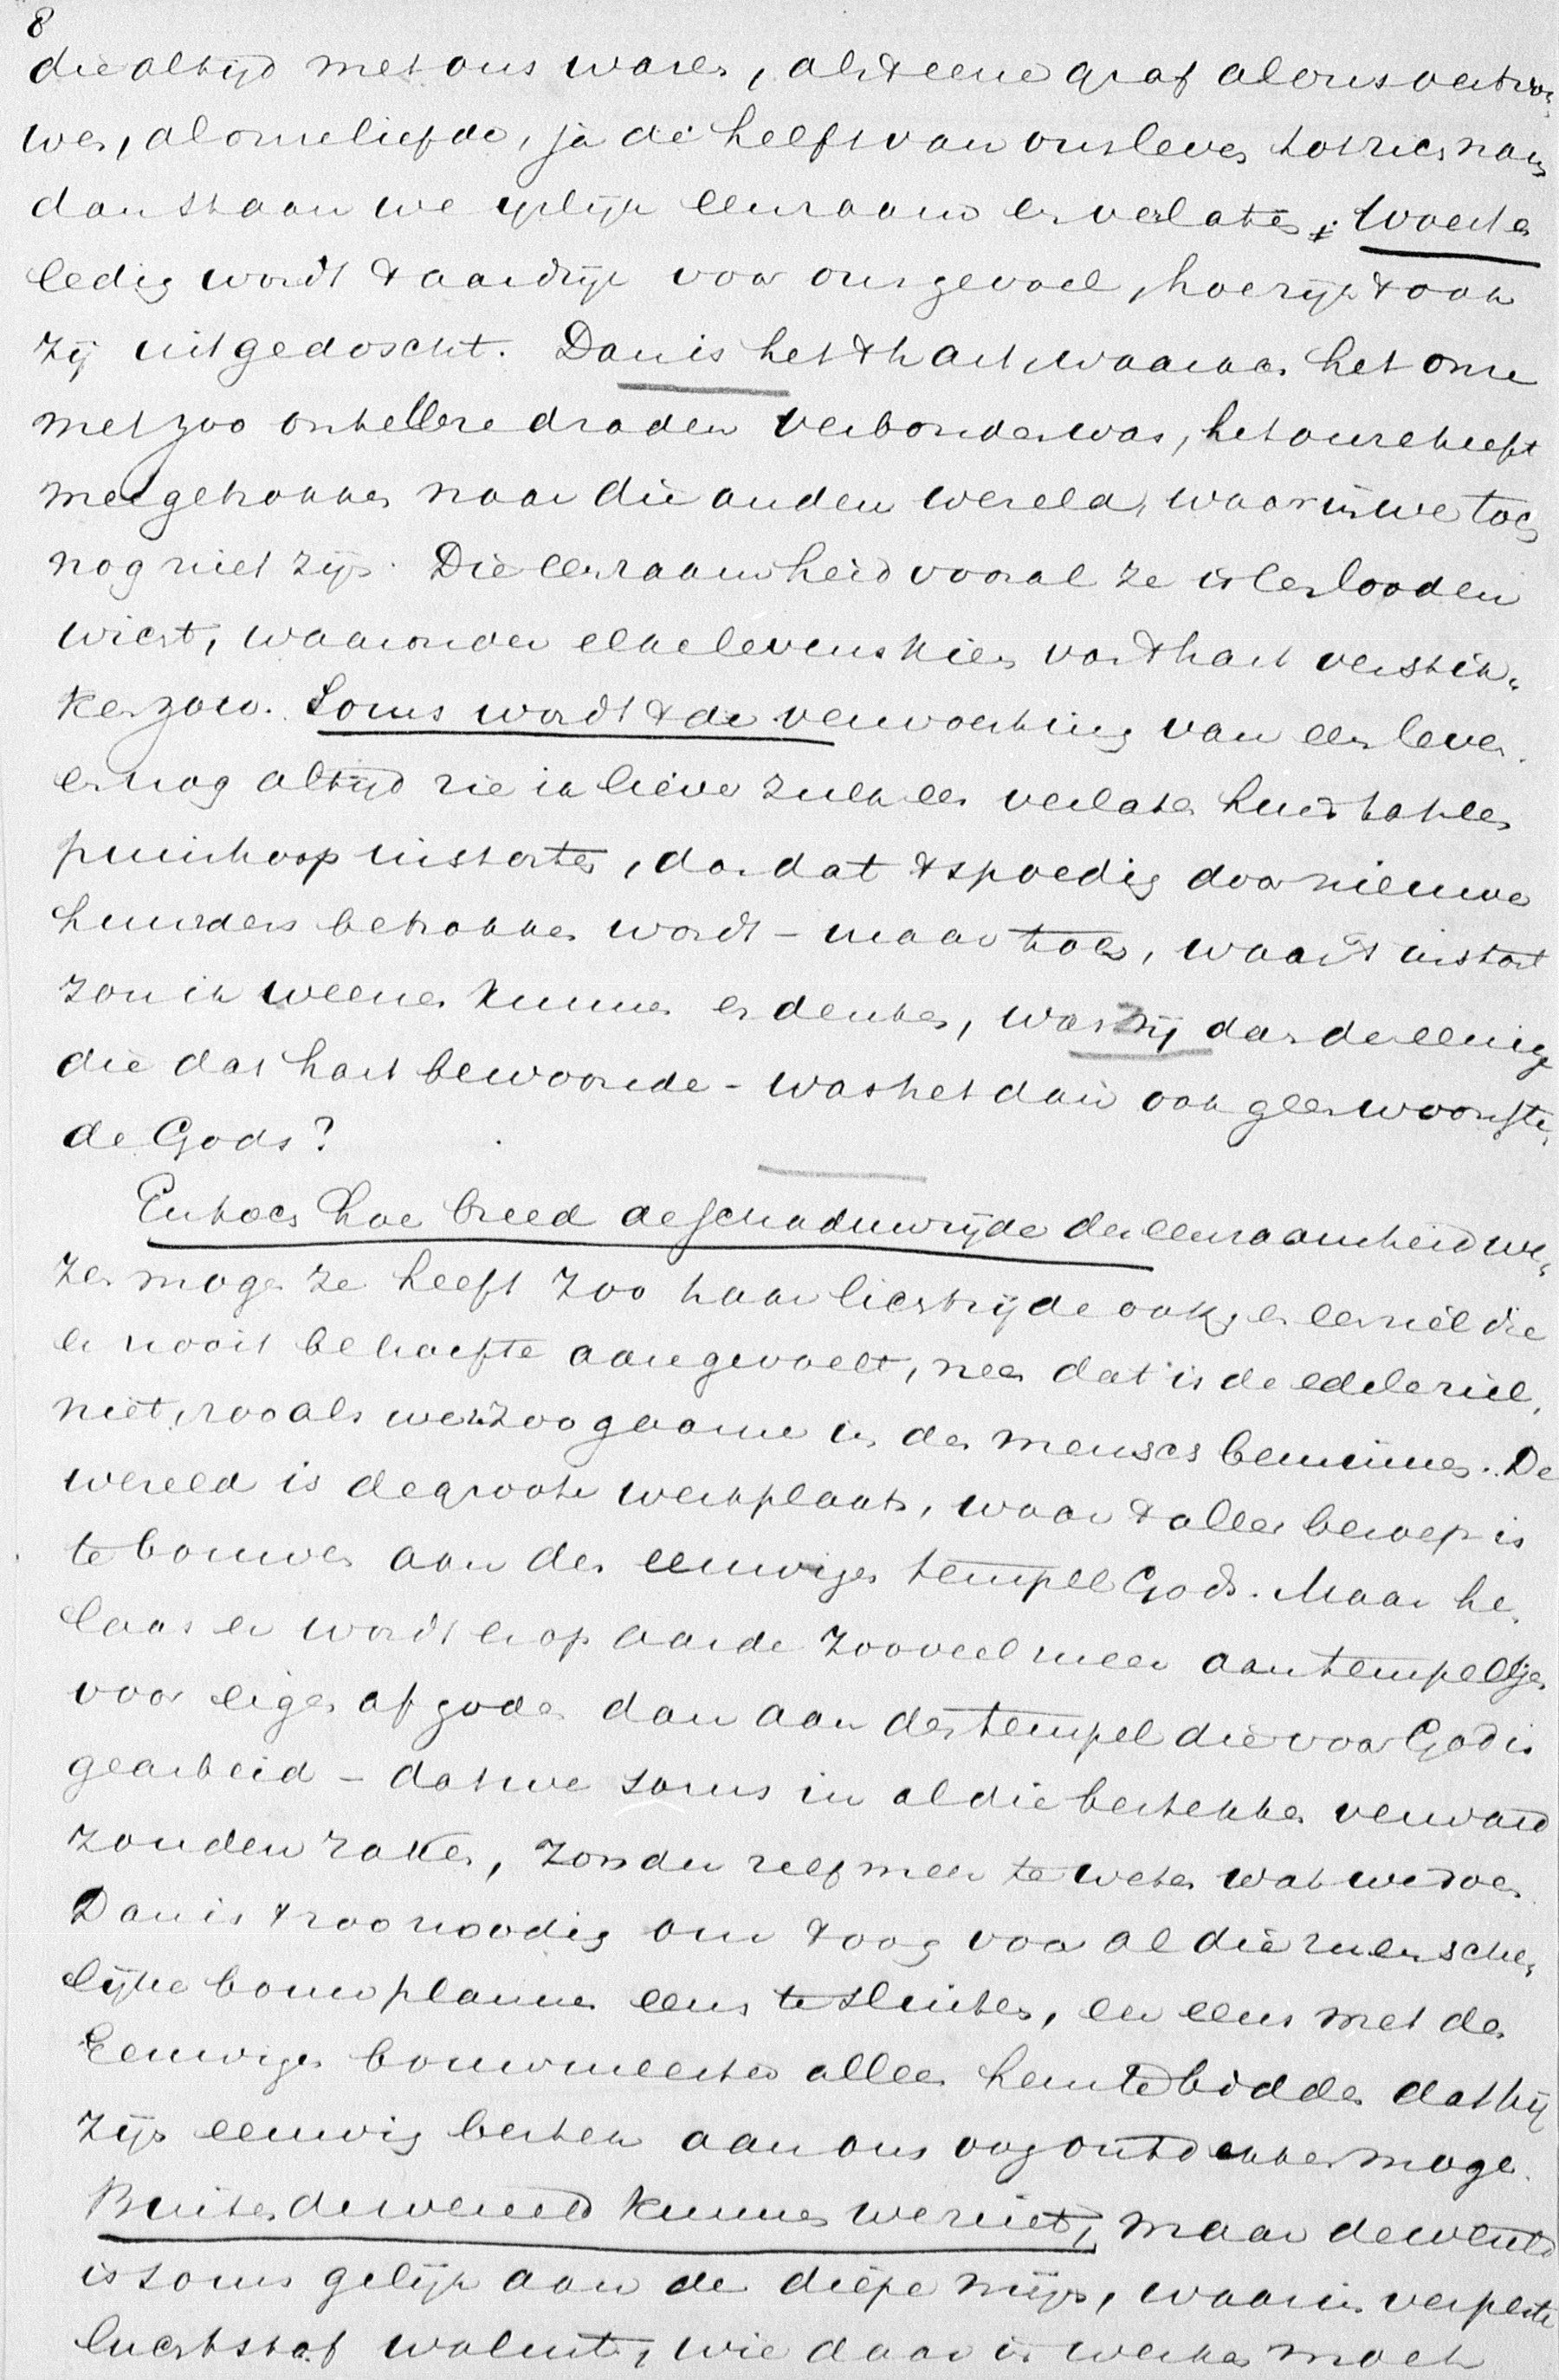 8
die altijd met ons waren, als 't eene graf al ons vertrou-
wen, al onze liefde, ja de helft van ons leven tot zich nam
dan staan we ijzelijk eenzaam en verlaten; Woest en
ledig wordt 't aardrijk voor ons gevoel, hoe rijk 't ook
zij uitgedoscht. Dan is het 't hart waaraan het onze
met zoo ontelbre draden verbonden was, het onze heeft
meegetrokken naar die andere wereld, waarin we toch
nog niet zijn. Die eenzaamheid vooral ze is een looden
wicht, waaronder elke levenskiem van 't hart verstik-
ken zou. Soms wordt 't de verwoesting van een leven.
en nog altijd zie ik liever zulk een verlaten huis tot een
puinhoop instorten, dan dat 't spoedig door nieuwe
huurders betrokken wordt - maar toch, waar 't instort
zou ik weenen kunnen en denken, was zij dan de eenige
die dat hart bewoonde - was het dan ook geen woonste-
de Gods?
En toch hoe breed de schaduwzijde der eenzaamheid we-
zen moge ze heeft zoo haar lichtzijde ook, en een ziel die
er nooit behoefte aan gevoelt, neen dat is de edele ziel
niet, zooals we zoo gaarne in den mensch beminnen. De
wereld is de groote werkplaats, waar 't aller beroep is
te bouwen aan den eeuwigen tempel Gods. Maar he-
laas er wordt er op aarde zooveel meer aan tempeltjes
voor eigen afgoden dan aan den tempel die voor God is
gearbeid - dat we soms in al die bestekken verward
zouden raken, zonder zelf meer te weten wat we doen.
Dan is 't zoo noodig om 't oog voor al die menschen-
lijke bouwplannen eens te sluiten, en eens met den
Eeuwigen bouwmeester alleen hem te bidden dat hij
zijn eeuwig bestek aan ons oog ontdekken moge.
Buiten de wereld kunnen we niet, maar de wereld
is soms gelijk aan de diepe mijn, waarin verpeste
luchtstof walmt, wie daar in werken moet